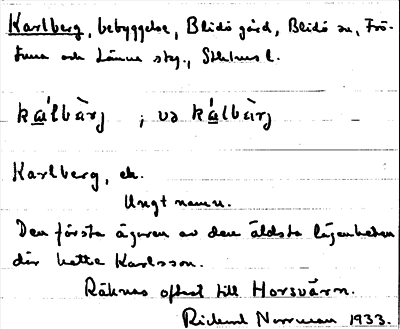 Karlberg, bebyggelse, Blidö gård, Blidö sn, Frö-
tuna och Länna skg., Sthlms l.
ka̱´lbàrj ; va ká̱lbàrj
Karlberg, eb.
Ungt namn.
Den första ägaren av den äldsta lägenheten
där hette Karlsson.
Räknas oftast till Horsvärn.
Rickard Norrman 1933.